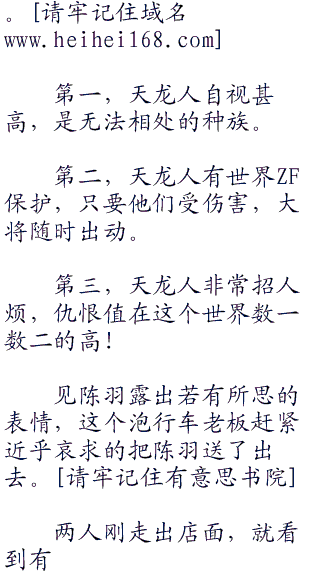 。[请牢记住域名
www.heihei168.com]
第一，天龙人自视甚
高，是无法相处的种族。
第二，天龙人有世界ZF
保护，只要他们受伤害，大
将随时出动。
第三，天龙人非常招人
烦，仇恨值在这个世界数一
数二的高！
见陈羽露出若有所思的
表情，这个泡行车老板赶紧
近乎哀求的把陈羽送了出
去。[请牢记住有意思书院]
两人刚走出店面，就看
到有